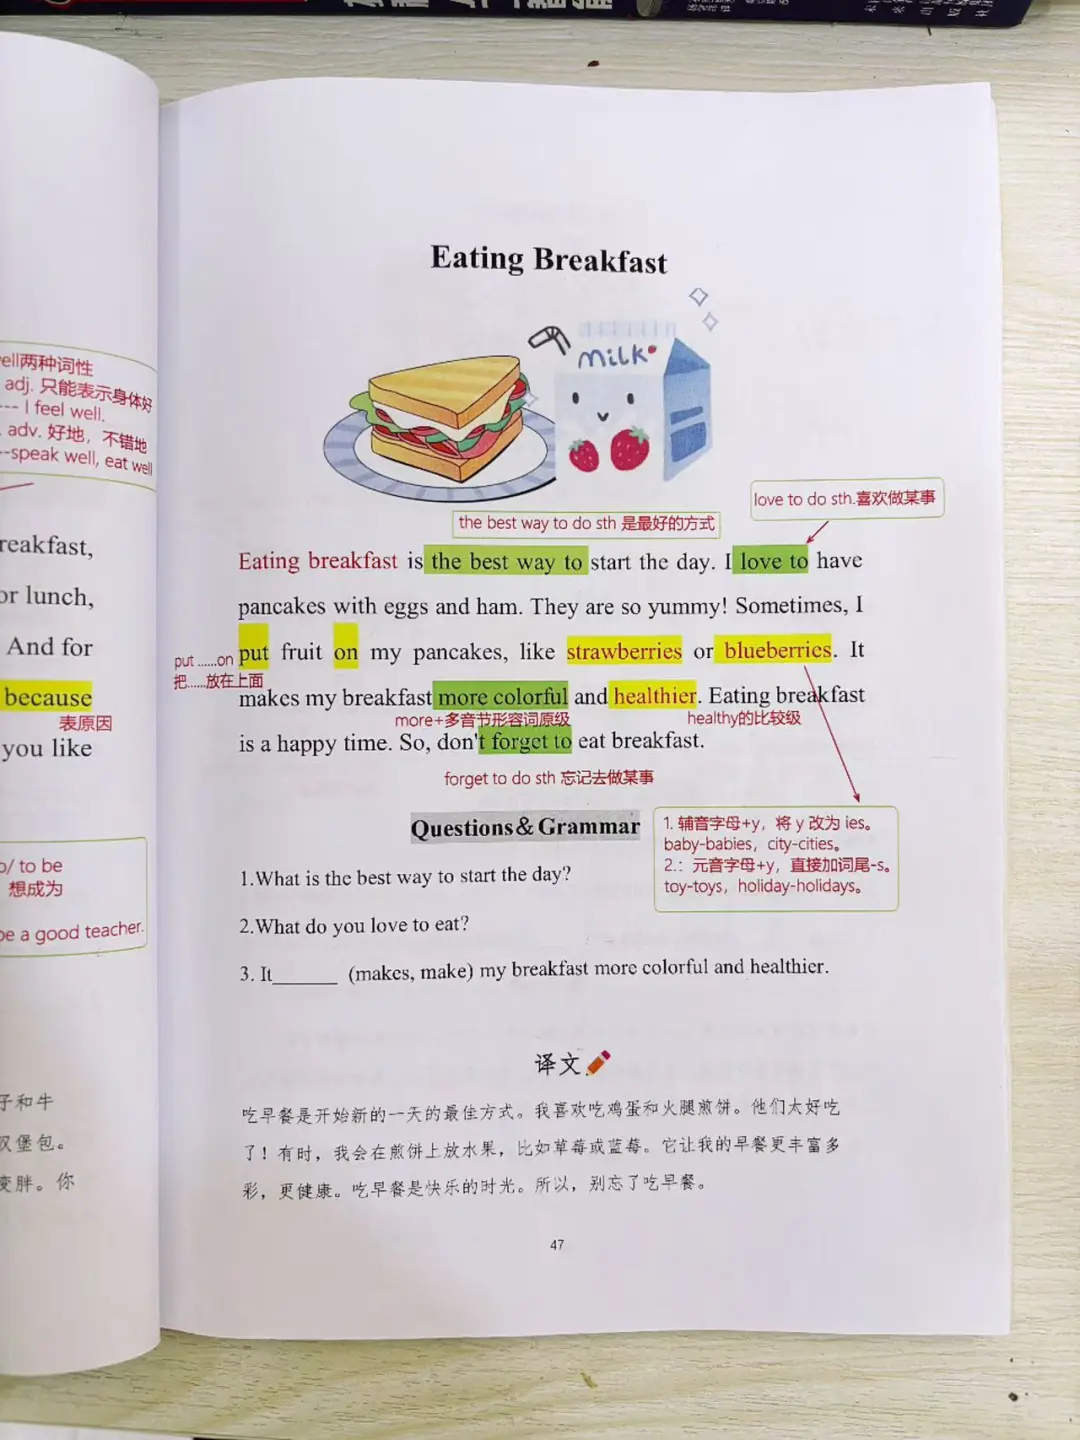 ell两种词性
adj. 只能表示身体好
--- I feel well.
adv. 好地，不错地
--speak well, eat well
reakfast,
or lunch,
And for
because
表原因
you like
o/ to be
想成为
be a good teacher.
子和牛
汉堡包。
变胖。你
Eating Breakfast
MiLK
the best way to do sth 是最好的方式
love to do sth.喜欢做某事
Eating breakfast is the best way to start the day. I love to have
pancakes with eggs and ham. They are so yummy! Sometimes, I
put fruit on my pancakes, like strawberries or blueberries. It
put ......on
把......放在上面
makes my breakfast more colorful and healthier. Eating breakfast
more+多音节形容词原级
healthy的比较级
is a happy time. So, don't forget to eat breakfast.
forget to do sth 忘记去做某事
Questions&Grammar
1. 辅音字母+y，将 y 改为 ies。
baby-babies，city-cities。
2.：元音字母+y，直接加词尾-s。
toy-toys，holiday-holidays。
1.What is the best way to start the day?
2.What do you love to eat?
3. It______ (makes, make) my breakfast more colorful and healthier.
译文
吃早餐是开始新的一天的最佳方式。我喜欢吃鸡蛋和火腿煎饼。他们太好吃
了！有时，我会在煎饼上放水果，比如草莓或蓝莓。它让我的早餐更丰富多
彩，更健康。吃早餐是快乐的时光。所以，别忘了吃早餐。
47